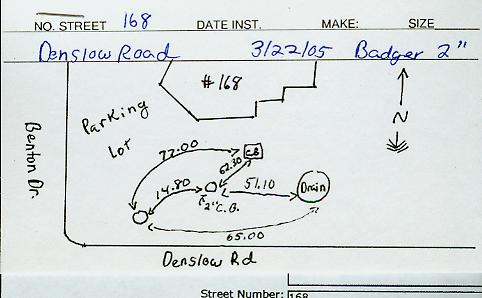 NO. STREET 168 DATE INST. MAKE: SIZE
Denslow Road 3/22/05 Badger 2"
#168
Parking
Lot
N
Benton Dr.
77.00
CB
62.30
14.80
51.10
Drain
2" C.B.
65.00
Denslow Rd
Street Number: 168